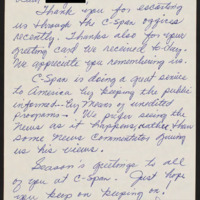 Thank you for escorting
us through the C-Span offices
recently. Thanks also for your
greeting card we received to-day.
We appreciate you remembering us.
C-Span is doing a great service
to America by keeping the public
informed by means of unedited
programs. We prefer seeing the
News as it happens, rather than
some News Commentator giving
us his views.
Season's Greetings to all
of you at C-Span. Just hope
you keep on keeping on!